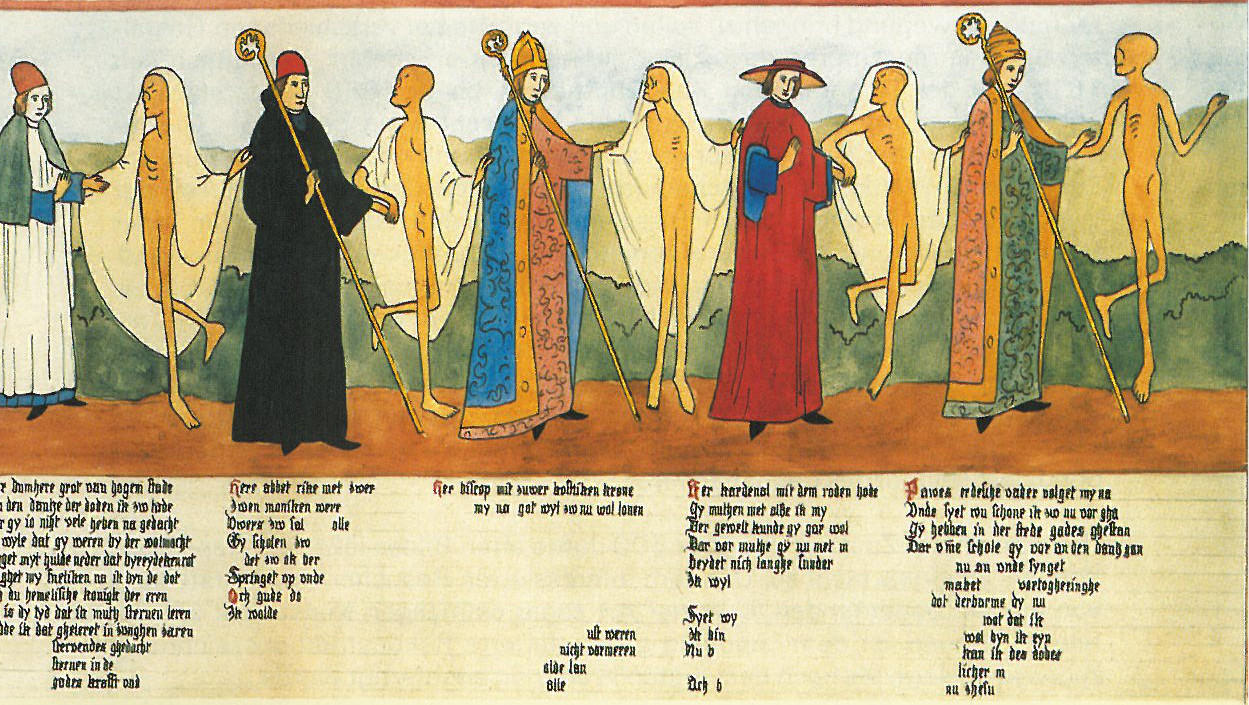 dumhere grot van hogem stade
den dantze der doden ik
gy io nicht vele heben na gedacht
wyle dat gy weren by der wolmacht
myt hulde neder dat
my snelliken na ik byn de dot
du hemelische konigk der eren
is dy tyd dat ik muth sterven leren
ik dat gheleret in junghen jaren
stervendes ghedacht
sterven in de
godes krafft und
Here abbet rike met
monniken mere
sal alle
Gy scholen
det ok der
Springet op unde
Och gude
Ik wolde
Her biscop mit juwer kostliken krone
my na got wyl nu wol lonen
ult weren
nicht vormeren
alde lan
alle
Her kardenal mit dem roden hode
Gy muthen met ik my
Her gewelt kunde gy gar wol
Dar vor muthe gy nu met m
beydet nich langhe sunder
Ik wyl
Syet wy
Ik bin
Nu b
Och b
Pawes erdesche vader volget my na
Unde syet wu schone ik nu vor gha
Gy hebben in der stede gades ghestan
Dar scholе gy vor an den gan
nu an unde synget
maket vortogheringhe
dot derbarme dy nu
wat dat ik
wol byn ik eyn
kan ik des dodes
licher m
nu Jhesu